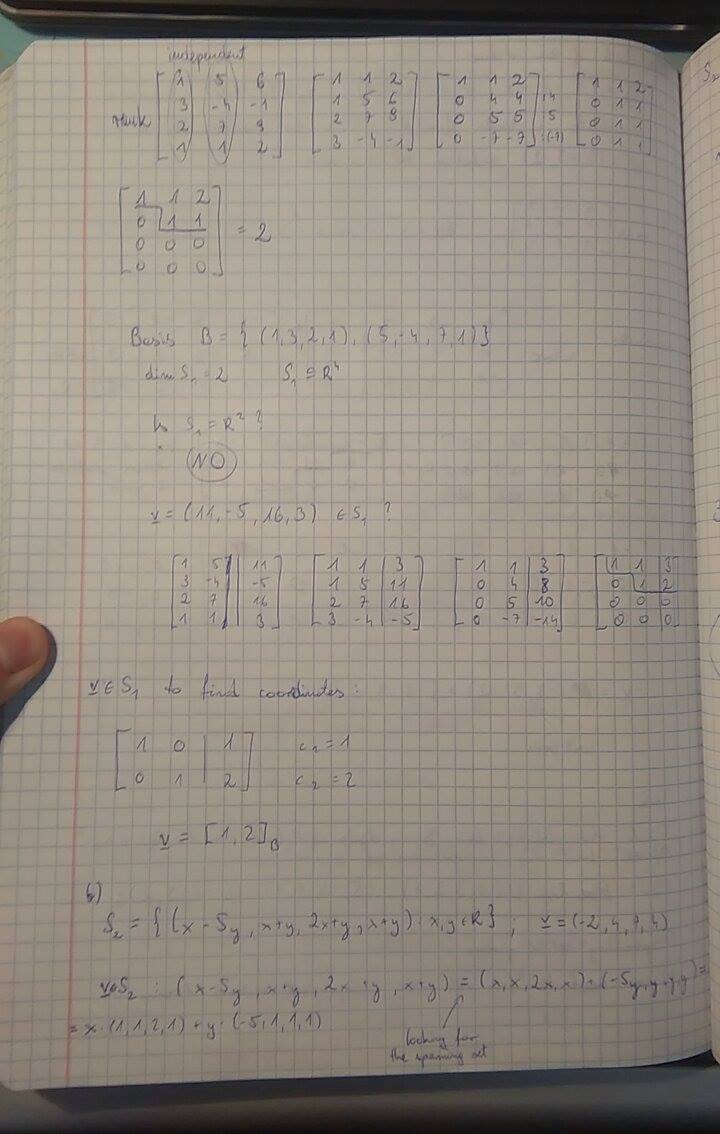 independent
rank [1 5 6; 3 -4 -1; 2 7 9; 1 1 2] [1 1 2; 1 5 6; 2 7 9; 3 -4 -1] [1 1 2; 0 4 4; 0 5 5; 0 -7 -7] :4 :5 :(-7) [1 1 2; 0 1 1; 0 1 1; 0 1 1]
[1 1 2; 0 1 1; 0 0 0; 0 0 0] = 2
Basis B = { (1,3,2,1), (5,-4,7,1)}
dim S₁ = 2 S₁ ⊆ R⁴
Is S₁ = R² ?
NO
v = (11,-5,16,3) ∈ S₁ ?
[1 5 | 11; 3 -4 | -5; 2 7 | 16; 1 1 | 3] [1 1 | 3; 1 5 | 11; 2 7 | 16; 3 -4 | -5] [1 1 | 3; 0 4 | 8; 0 5 | 10; 0 -7 | -14] [1 1 | 3; 0 1 | 2; 0 0 | 0; 0 0 | 0]
v ∈ S₁ to find coordinates:
[1 0 | 1; 0 1 | 2] c₁ = 1
c₂ = 2
v = [1,2]_B
b)
S₂ = { (x-5y, x+y, 2x+y, x+y) : x,y ∈ R} ; v = (-2,4,7,4)
v∈S₂ : (x-5y, x+y, 2x+y, x+y) = (x,x,2x,x) + (-5y,y,y,y) =
= x·(1,1,2,1) + y·(-5,1,1,1)
looking for
the spanning set